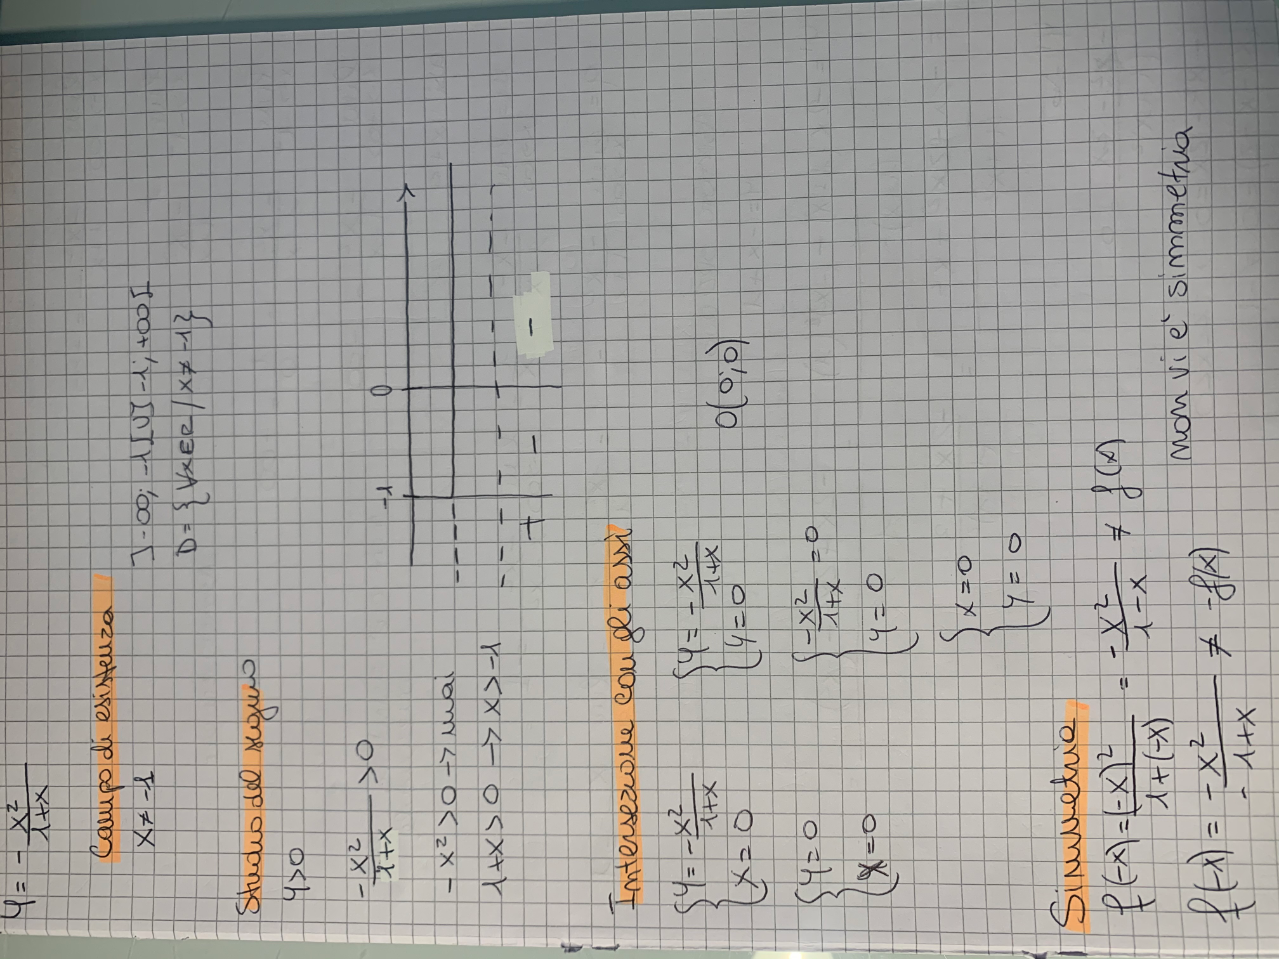 y = - x²/1+x
Campo di esistenza
x ≠ -1
]-∞; -1[U]-1; +∞[
D = {∀x∈R / x ≠ -1}
Studio del segno
y>0
-x²/1+x >0
-x²>0 → mai
1+x>0 → x>-1
-1 0
+ - -
Intersezione con gli assi
{y = -x²/1+x {y = -x²/1+x
{x=0 {y=0
O(0;0)
{y=0 {-x²/1+x =0
{x=0 {y=0
{x=0
{y=0
Simmetria
f(-x) = (-x)²/1+(-x) = -x²/1-x ≠ f(x)
f(-x) = -x²/-1+x ≠ -f(x)
non vi è simmetria